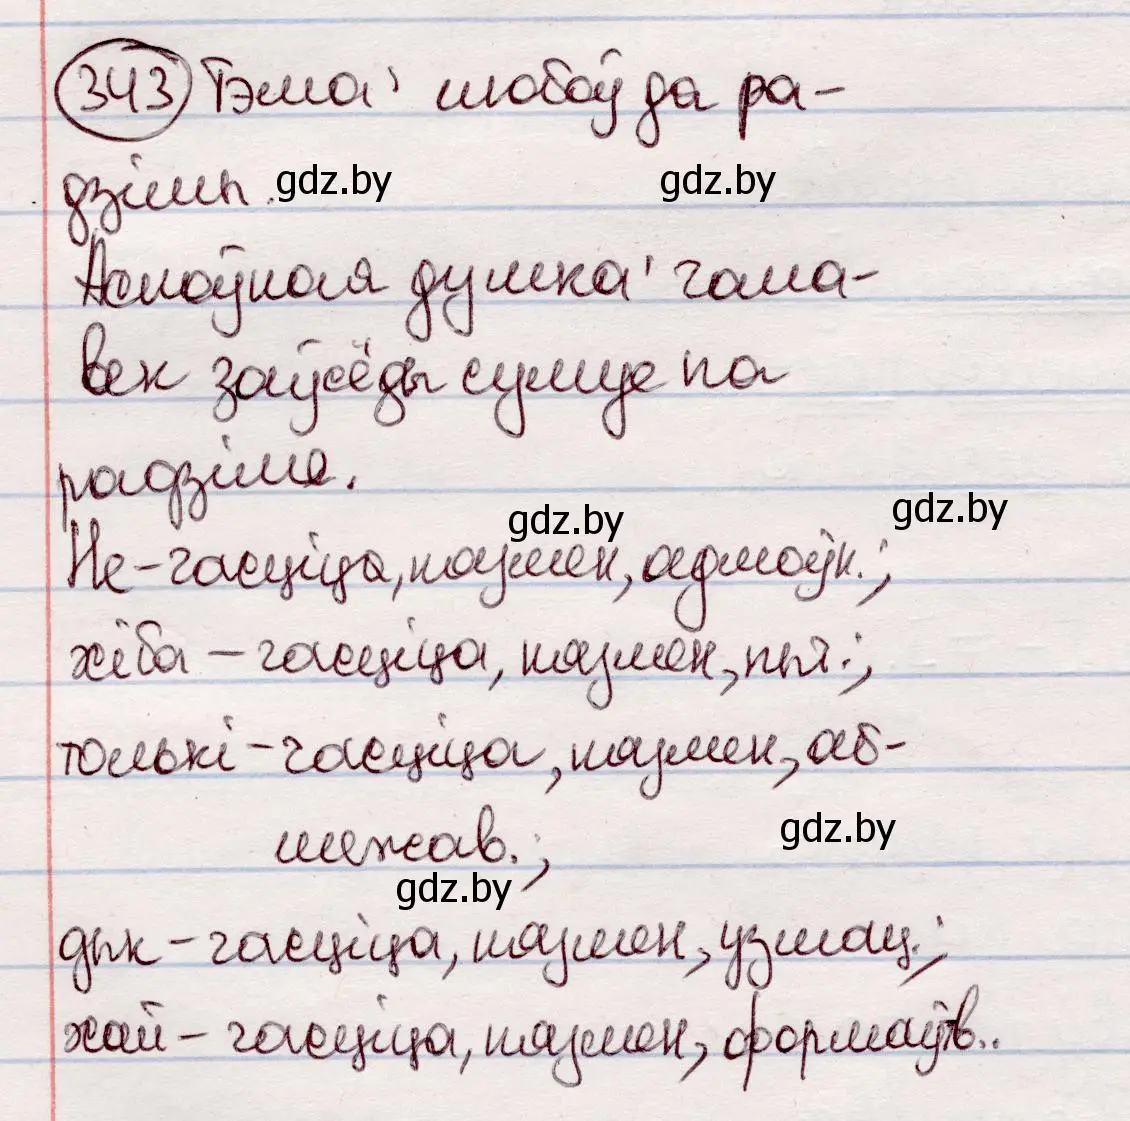 343 Тэма: любоў да ра-
дзімы.
gdz.by
gdz.by
Асноўная думка: чала-
век заўсёды сумуе па
радзіме.
gdz.by
gdz.by
Не - часціца, нязмен, адмоўн.;
хіба - часціца, нязмен, пыт.;
толькі - часціца, нязмен, аб-
межав.;
gdz.by
gdz.by
дык - часціца, нязмен, узмац.;
хай - часціца, нязмен, формаўтв..